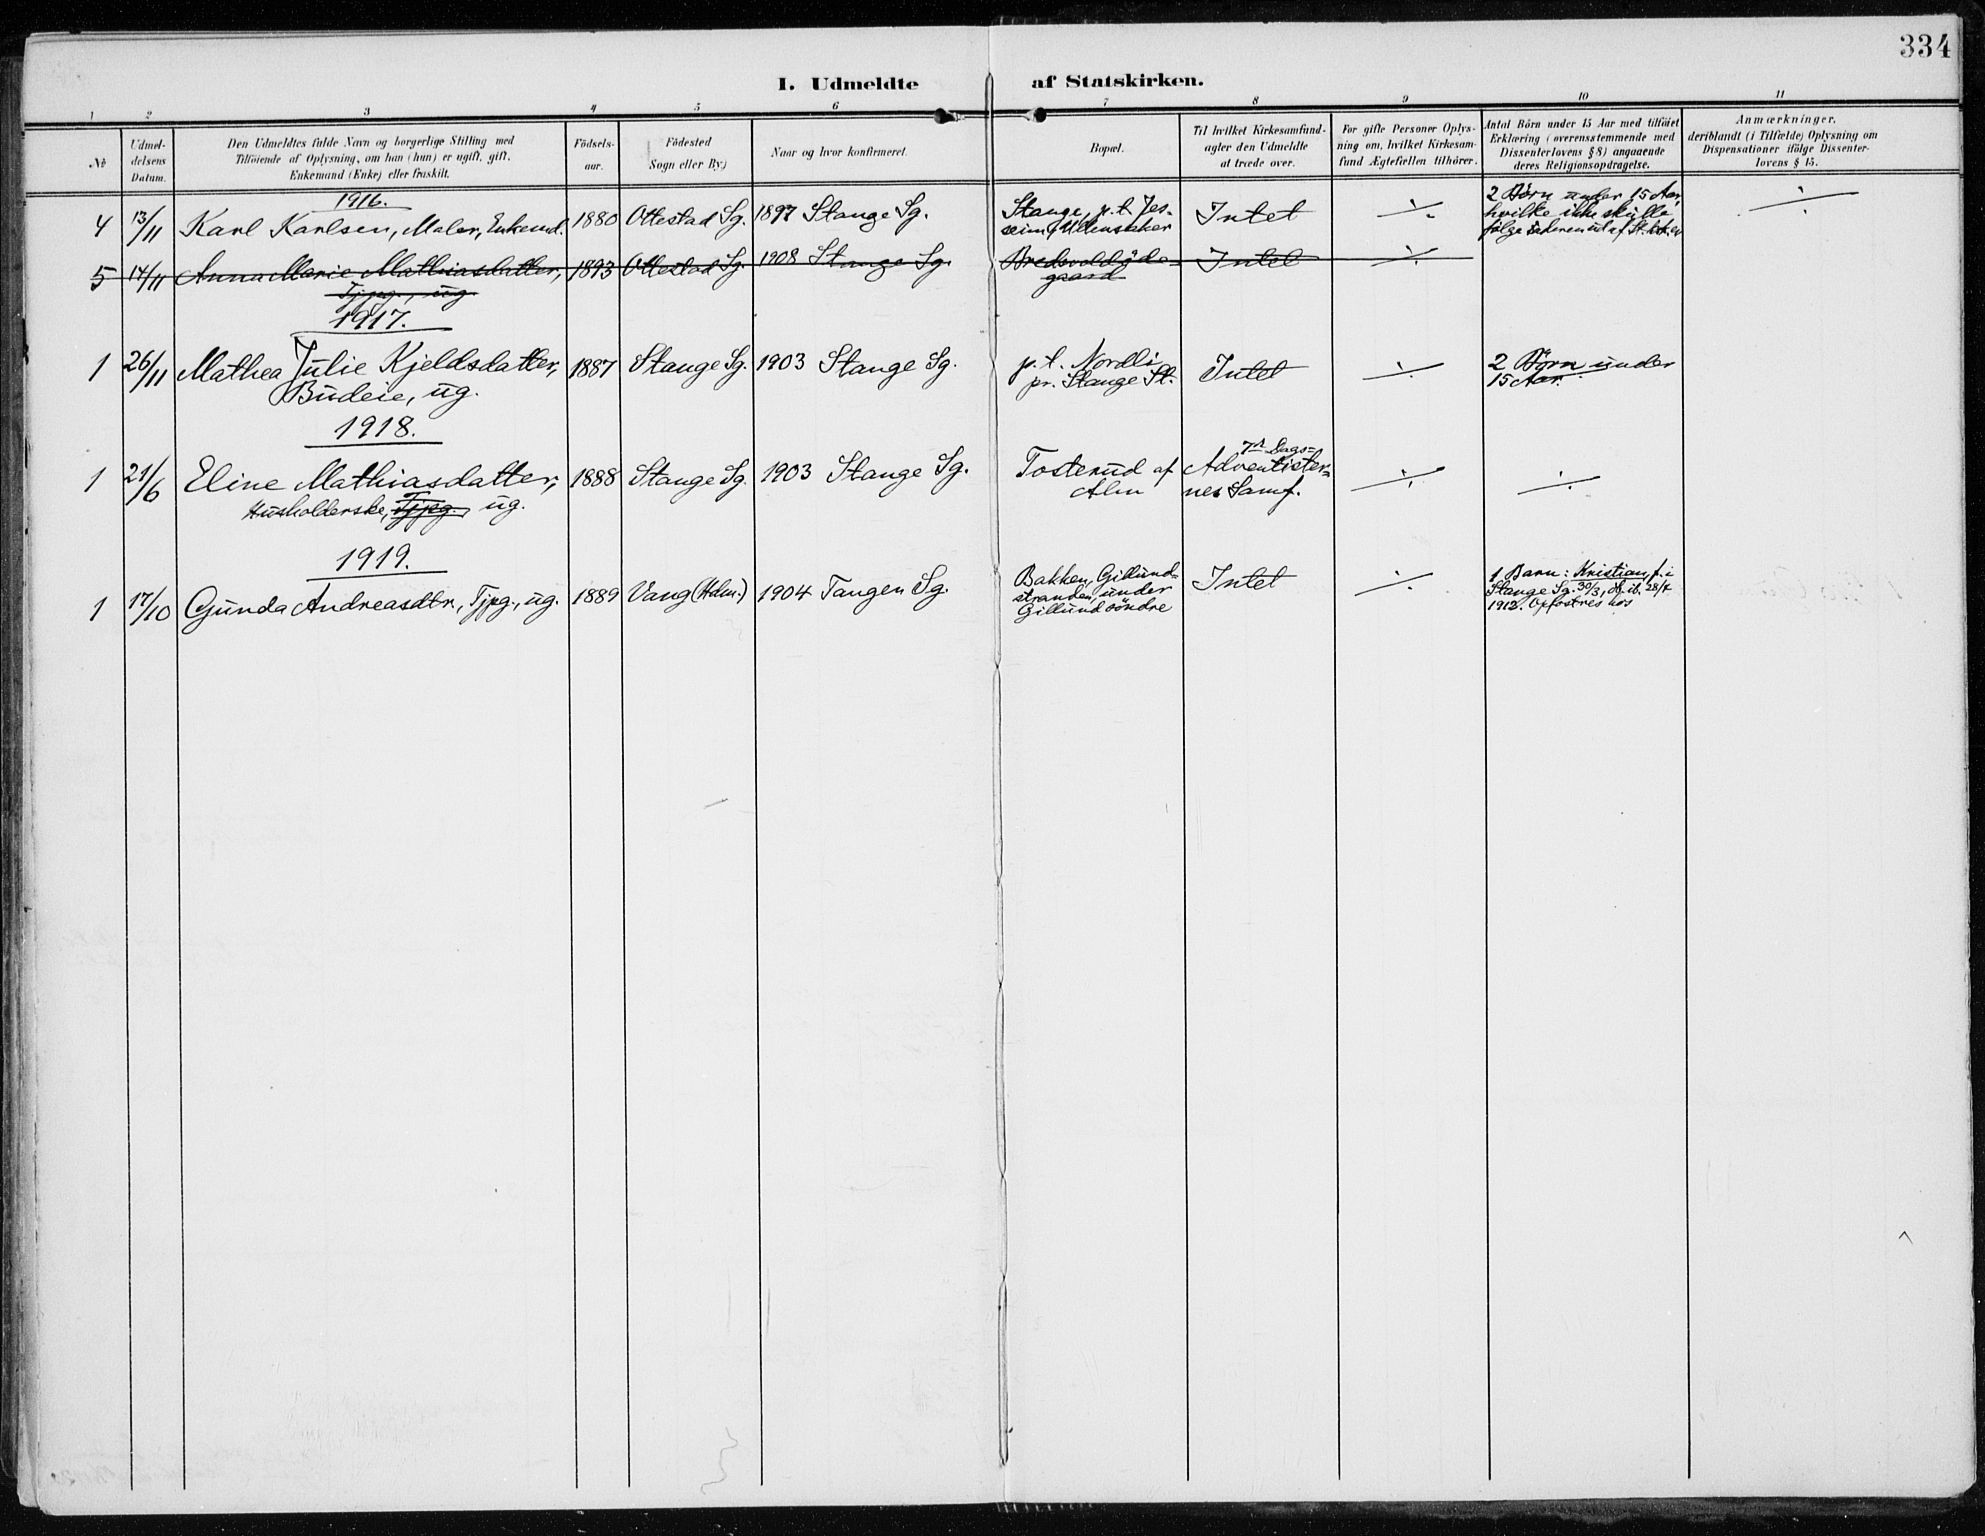 334
I. Udmeldte af Statskirken.
1 2 3 4 5 6 7 8 9 10 11
No
Udmel-
delsens
Datum.
Den Udmeldtes fulde Navn og borgerlige Stilling med
Tilföiende af Oplysning, om han (hun) er ugift, gift,
Enkemand (Enke) eller fraskilt.
Födsels-
aar.
Födested
Sogn eller By.)
Naar og hvor konfirmeret.
Bopæl.
Til hvilket Kirkesamfund-
agter den Udmeldte
at træde over.
For gifte Personer Oplys-
ning om, hvilket Kirkesam-
fund Ægtefællen tilhörer.
Antal Börn under 15 Aar med tilföiet
Erklæring (overensstemmende med
Dissenterlovens § 8) angaaende
deres Religionsopdragelse.
Anmærkninger,
deriblandt (i Tilfælde) Oplysning om
Dispensationer ifölge Dissenter-
lovens § 15.
1916.
4 13/11 Karl Karlsen, Maler, Enkemd. 1880 Ottestad Sg. 1897 Stange Sg.
Stange, p.t. Jes-
seim, Ullensaker
Intet ÷
2 Börn under 15 Aar,
hvilke ikke skulle
fölge Faderen ud af St.k.
÷
5 14/11 Anna Marie Mathiasdatter, 1893 Ottestad Sg. 1908 Stange Sg.
Tjpg., ug.
gaard
Intet ÷
1917.
1 26/11 Mathea Julie Kjeldsdatter, 1887 Stange Sg. 1903 Stange Sg.
Budeie, ug.
p.t. Nordli
pr. Stange St.
Intet ÷
2 Börn under
15 Aar.
1918.
1 21/6 Eline Mathiasdatter, 1888 Stange Sg. 1903 Stange Sg.
Husholderske, Tjpg., ug.
Tosterud af
Alm
7de Dags-
Adventister-
nes Samf.
÷ ÷
1919.
1 17/10 Gunda Andreasdtr., Tjpg., ug. 1889 Vang (Hdm.) 1904 Tangen Sg.
Bakken, Gillund-
stranden, under
Gillund söndre
Intet ÷
1 Barn: Kristian, f. i
Stange Sg. 30/3, db. ib. 28/7
1912. Opfostres hos